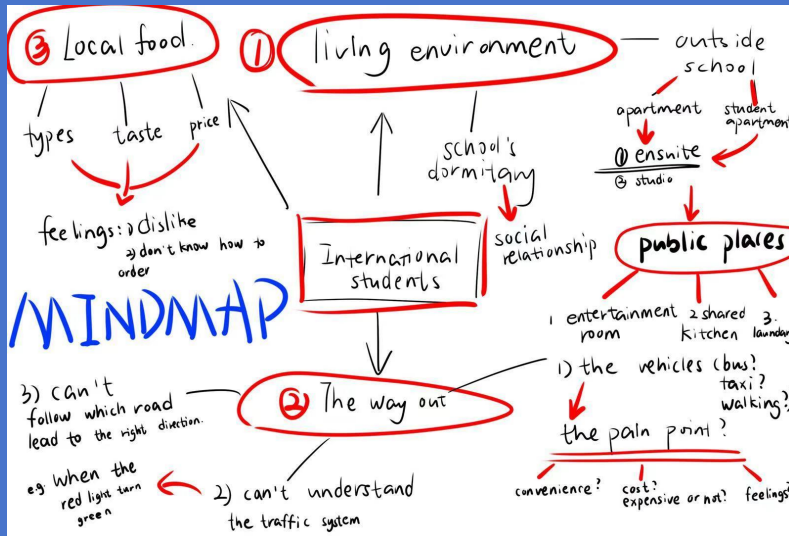 ③ Local food.
types taste price
feelings: 1) dislike
2) don't know how to
order
MINDMAP
① living environment
outside
school
apartment
student
apartment
① ensuite
② studio
school's
dormitary
social
relationship
public places
1 entertainment
room
2 shared
kitchen
3.
International
students
② The way out
1) the vehicles (bus?
taxi?
walking?
the pain point?
convenience?
cost?
expensive or not?
feelings?
2) can't understand
the traffic system
e.g. when the
red light turn
green
3) can't
follow which road
lead to the right direction.